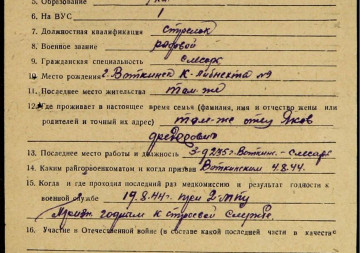 5. Образование
6. На ВУС 1
7. Должностная квалификация стрелок
8. Военное звание рядовой
9. Гражданская специальность слесарь
10. Место рождения г. Воткинск К-Либкнехта №9
11. Последнее место жительства там-же
12. Где проживает в настоящее время семья (фамилия, имя и отчество жены или
родителей и точный их адрес) там-же отец Яков
Федорович
13. Последнее место работы и должность Воткинск. - слесарь
14. Каким райгорвоенкоматом и когда призван Воткинским 4.8.44.
15. Когда и где проходил последний раз медкомиссию и результат годности к
военной службе 19.8.44 - при
годным к строевой службе.
16. Участие в Отечественной войне (в составе какой последней части в качеств